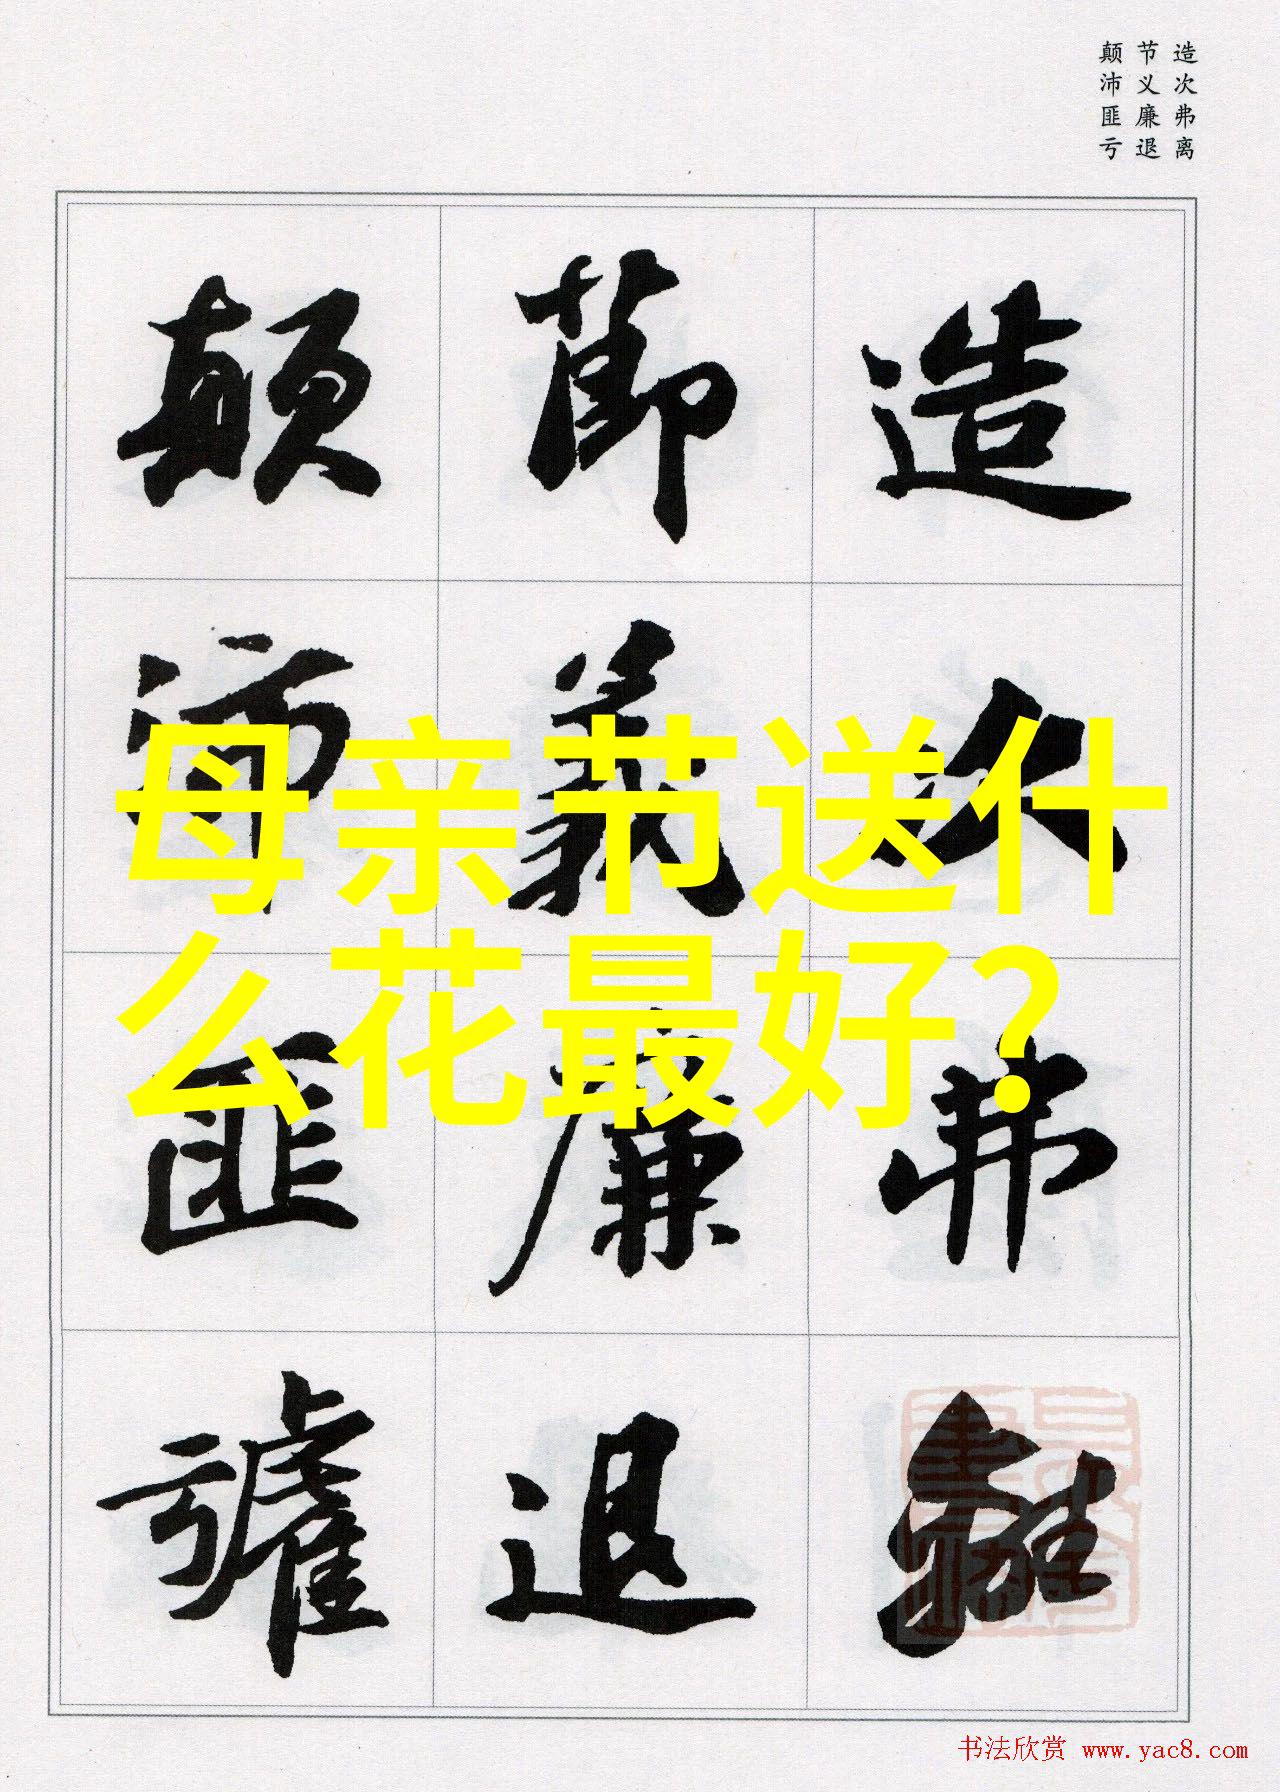 造次弗离
节义廉退
颠沛匪亏
造次弗離
節義廉退
顛沛匪虧
母亲节送什
么花最好?
书法欣赏 www.yac8.com